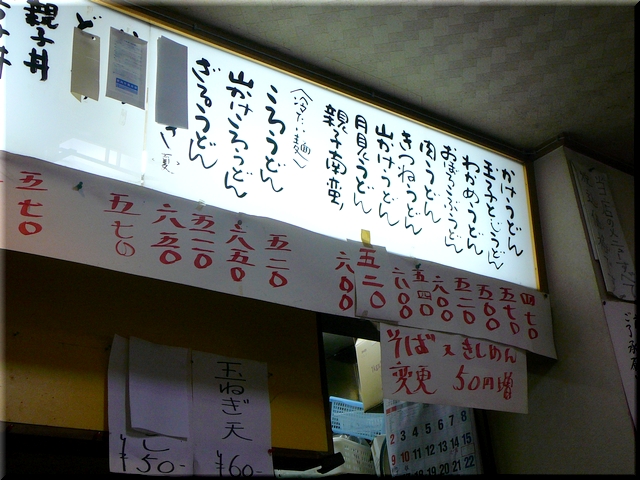 かけうどん
玉子とじうどん
わかめうどん
うどん
肉うどん
きつねうどん
山かけうどん
月見うどん
親子南蛮
(冷たい麺)
ころうどん
山かけころうどん
ざるうどん
夏
ど
親子丼
四七〇
五七〇
五五〇
五二〇
六〇〇
五四〇
六〇〇
五二〇
六〇〇
五二〇
六五〇
五一〇
六五〇
五七〇
五七〇
そば きしめん
変更 50円増
玉ねぎ天
¥60-
¥50-
2 3 4 5 6 7 8
9 10 11 12 13 14 15
18 19 20 21 22